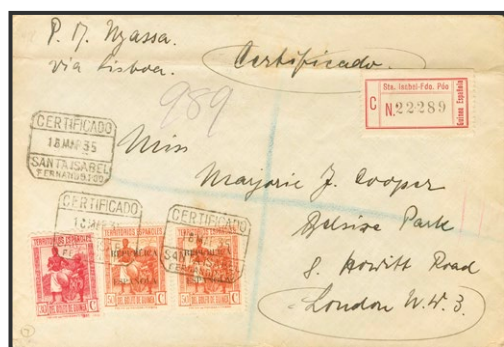 P. M. Nyassa.
via Lisboa.
Certificado.
989
Sta. Isabel-Fdo. Póo
C N. 22289
Guinea Española
CERTIFICADO
18 MAR 35
SANTA ISABEL
FERNANDO POO
Miss
Marjorie J. Cooper
Belsize Park
8. Howitt Road
London N.W. 3.
CERTIFICADO
CERTIFICADO
TERRITORIOS ESPAÑOLES
DEL GOLFO DE GUINEA
TERRITORIOS ESPAÑOLES
REPUBLICA
ESPAÑOLA
50 C
DEL GOLFO DE GUINEA
TERRITORIOS ESPAÑOLES
50 C
DEL GOLFO DE GUINEA